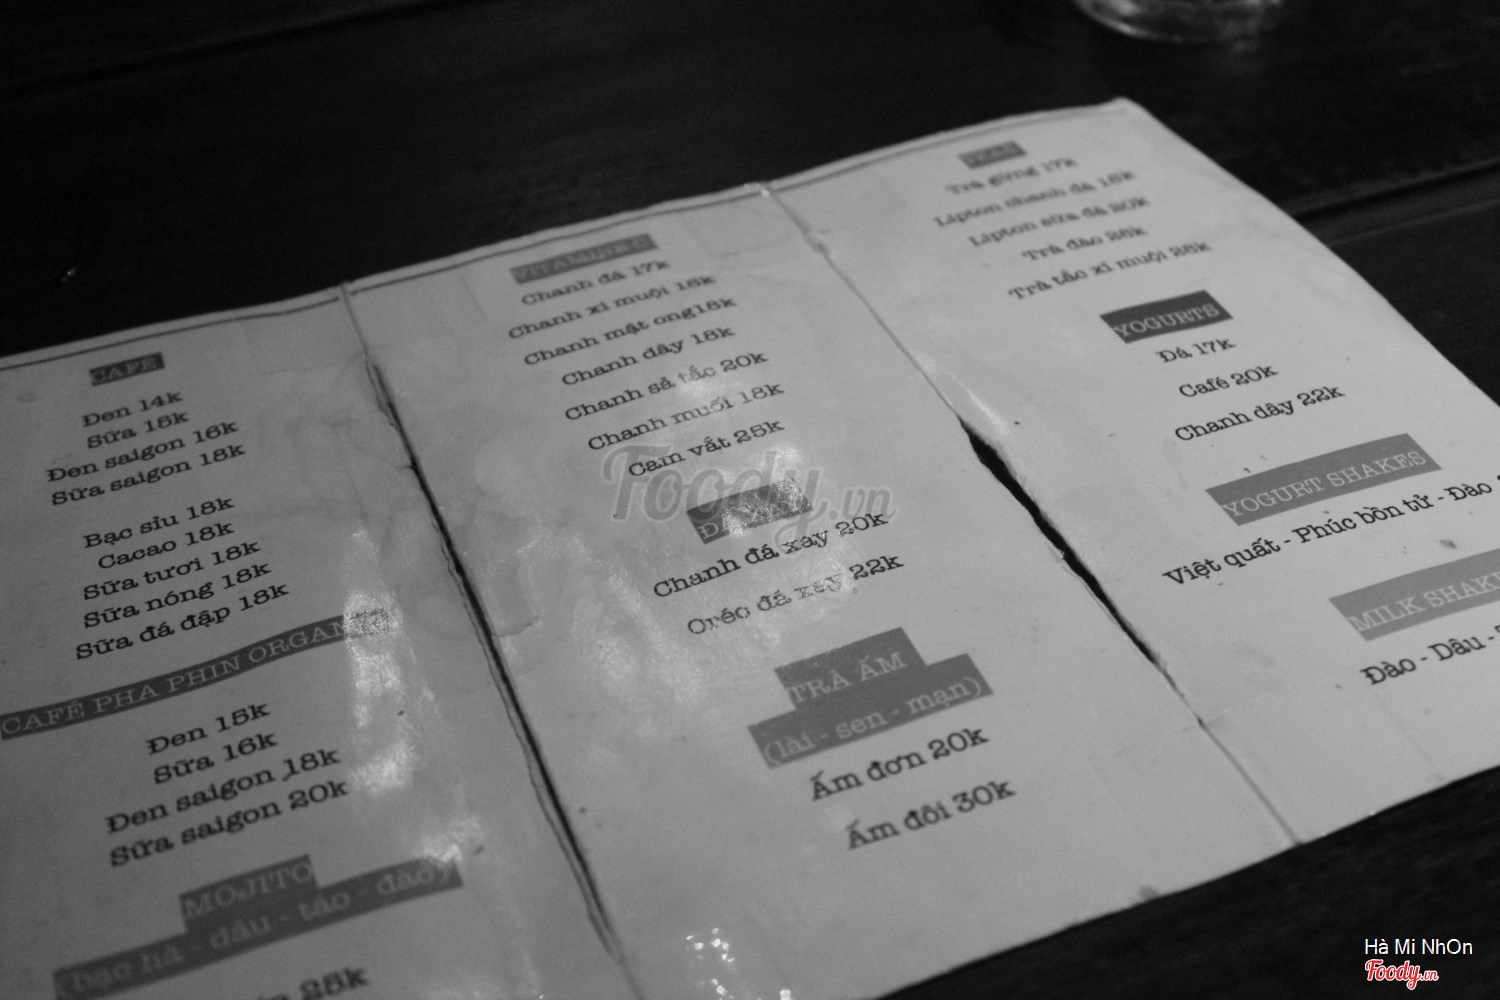 CAFÊ
Đen 14k
Sữa 15k
Đen saigon 16k
Sữa saigon 18k
Bạc sỉu 18k
Cacao 18k
Sữa tươi 18k
Sữa nóng 18k
Sữa đá đập 18k
CAFÊ PHA PHIN ORGANIC
Đen 15k
Sữa 16k
Đen saigon 18k
Sữa saigon 20k
MOJITO
(bạc hà - dâu - táo - đào)
25k
VITAMINES
Chanh đá 17k
Chanh xí muội 18k
Chanh mật ong18k
Chanh dây 18k
Chanh sả tắc 20k
Chanh muối 18k
Cam vắt 25k
ĐÁ XAY
Chanh đá xay 20k
Oréo đá xay 22k
TRÀ ẤM
(lài - sen - mạn)
Ấm đơn 20k
Ấm đôi 30k
TEAS
Trà gừng 17k
Lipton chanh đá 18k
Lipton sữa đá 20k
Trà đào 28k
Trà tắc xí muội 28k
YOGURTS
Đá 17k
Café 20k
Chanh dây 22k
YOGURT SHAKES
Việt quất - Phúc bồn tử - Đào
MILK SHAKE
Đào - Dâu -
Foody.vn
Hà Mi NhOn
Foody.vn